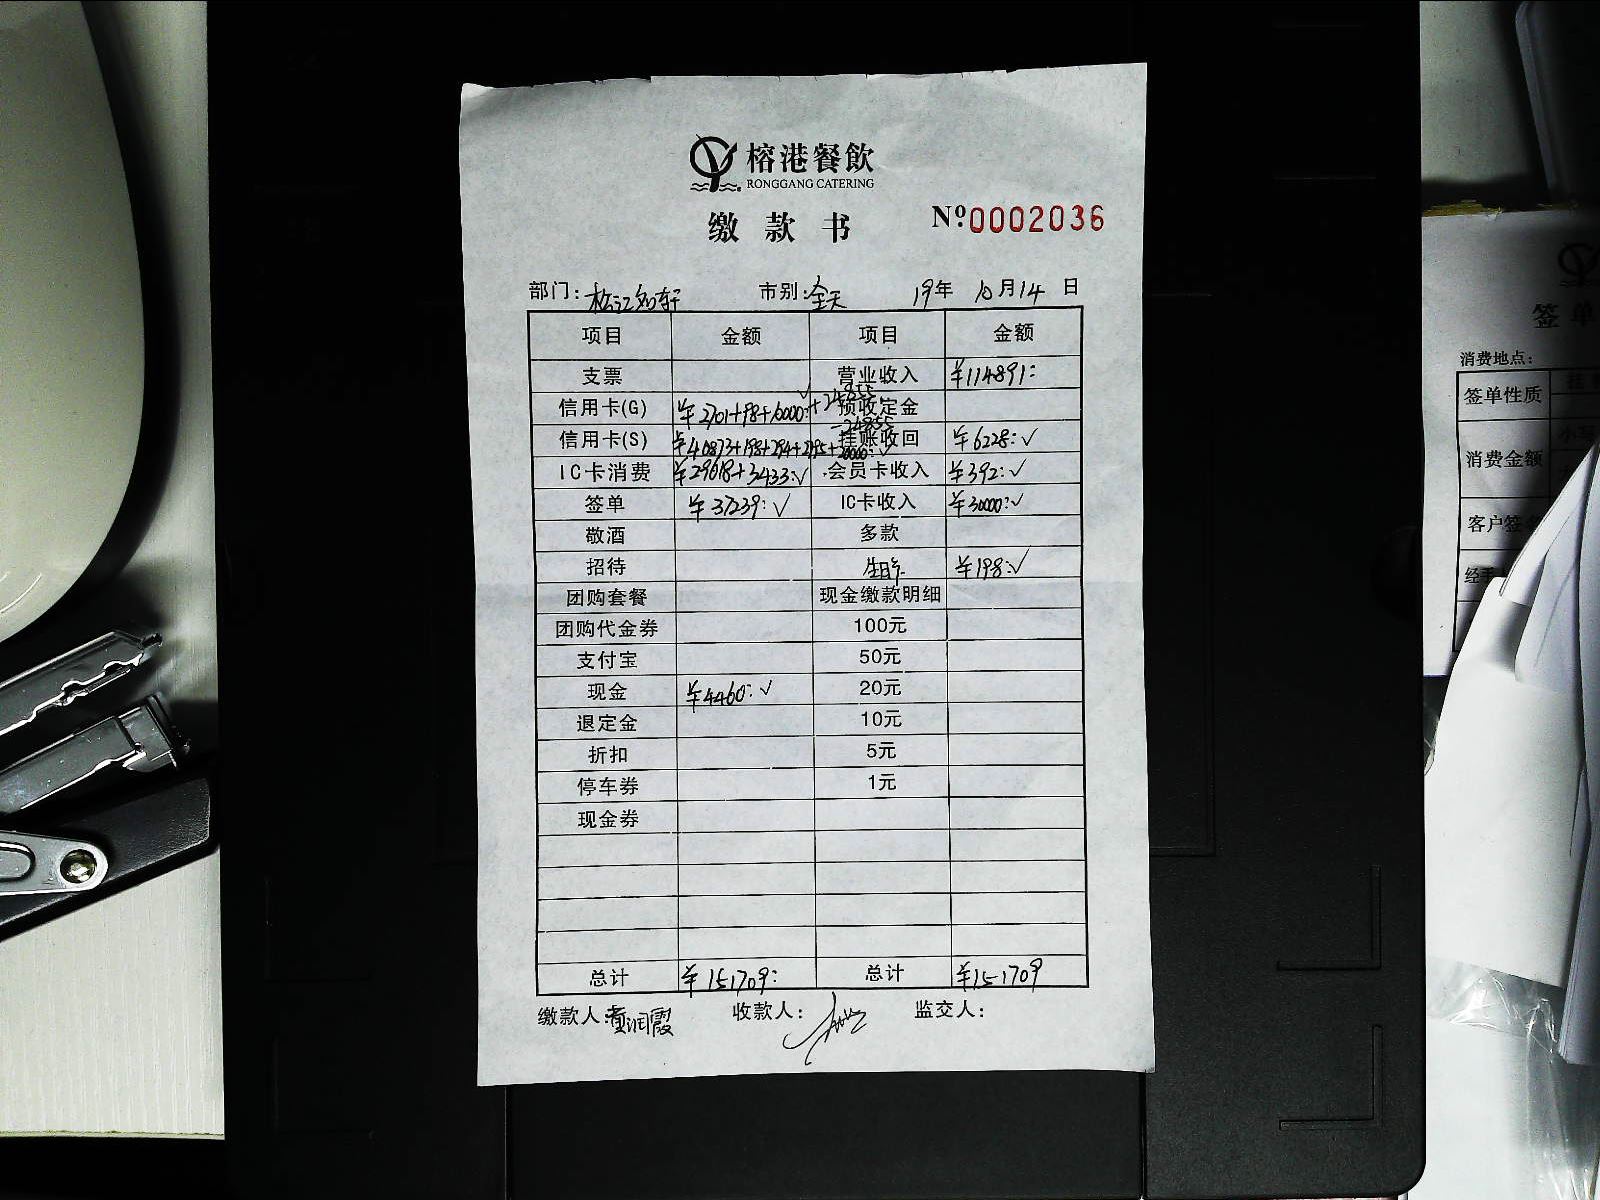 榕港餐飲
RONGGANG CATERING
缴款书 Nº0002036
部门: 市别:全天 19年 10月14日
项目 金额 项目 金额
支票 营业收入 ¥114891:
信用卡(G) ¥2701+98+10000:+24855 预收定金
-24855
信用卡(S) 挂账收回 ¥6228:✓
IC卡消费 ¥29618+3433:✓ 会员卡收入 ¥392:✓
签单 ¥37239:✓ IC卡收入 ¥30000:✓
敬酒 多款
招待 ¥198:✓
团购套餐 现金缴款明细
团购代金券 100元
支付宝 50元
现金 ¥4460:✓ 20元
退定金 10元
折扣 5元
停车券 1元
现金券
总计 ¥151709: 总计 ¥151709
缴款人:董润霞 收款人: 监交人:
签单
消费地点:
签单性质 挂
消费金额
客户签
经手